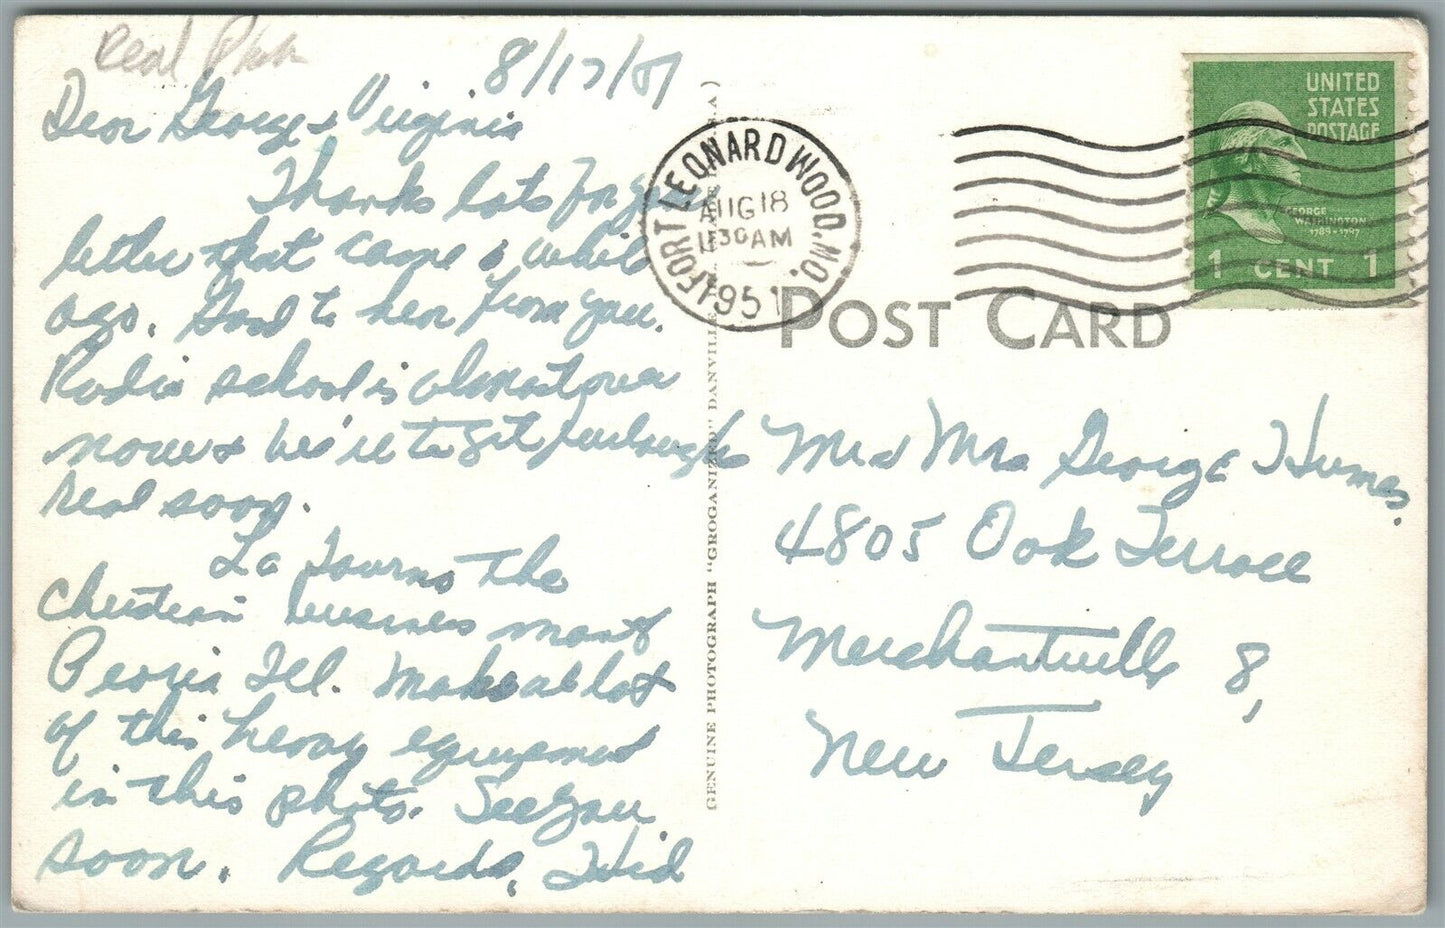 Real Photo
8/17/51
Dear George & Virginia
Thanks lots for yr
letter that came a while
ago. Good to hear from you.
Radio school is almost over
now & we'll to get furloughs
real soon.
Le Tourns the
Christian business man of
Peoria Ill. makes a lot
of this heavy equipment
in this photo. See you
soon. Regards, Hid
GENUINE PHOTOGRAPH "GROGANIZED" DANVILLE
A)
FORT LEONARD WOOD, MO.
AUG 18
11 30 AM
1951
UNITED
STATES
POSTAGE
GEORGE
WASHINGTON
1789-1797
1 CENT 1
POST CARD
Mr & Mrs George Humes.
4805 Oak Terrace
Merchantville 8,
New Jersey